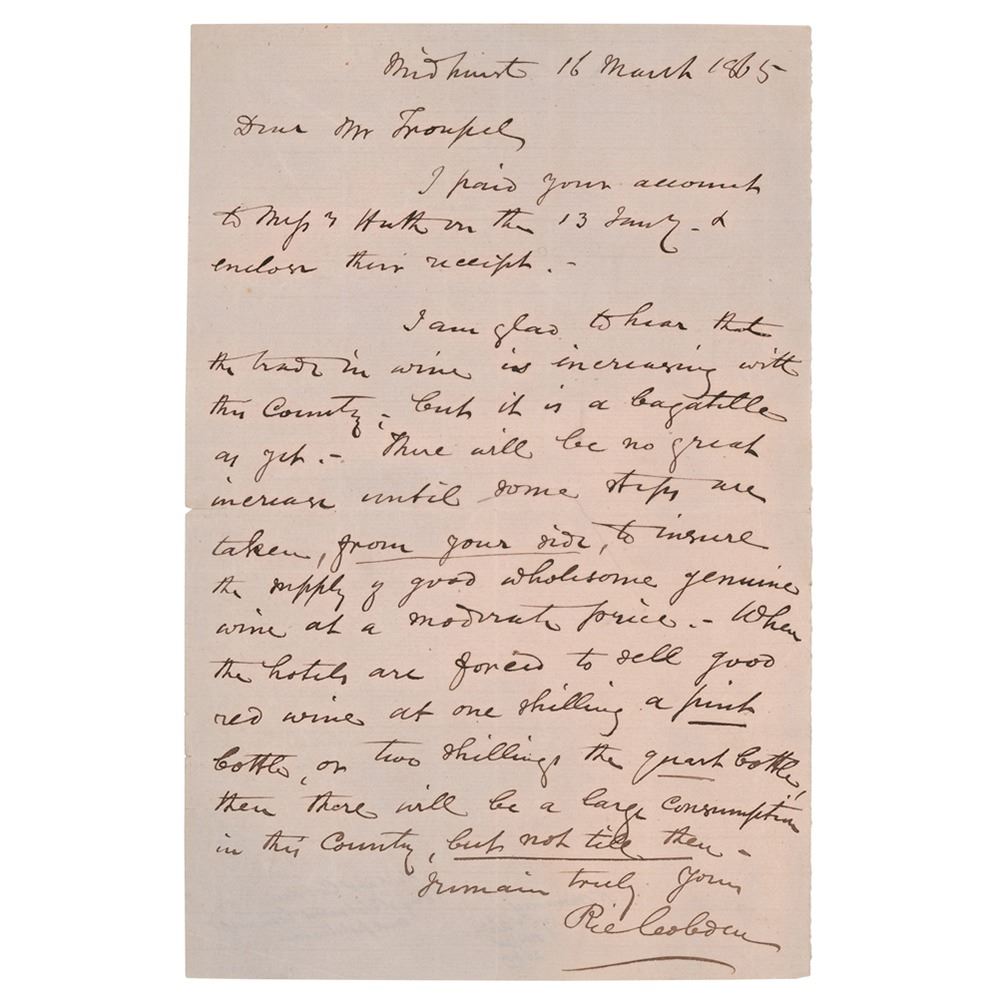 Midhurst 16 March 1865
Dear Mr
I paid your account
to Messrs Huth on the 13 Jany - &
enclose their receipt. -
I am glad to hear that
the trade in wine is increasing with
this Country; - but it is a bagatelle
as yet. - There will be no great
increase until some steps are
taken, from your side, to insure
the supply of good wholesome genuine
wine at a moderate price. - When
the hotels are forced to sell good
red wine at one shilling a pint
bottle, or two shillings the quart bottle,
then there will be a large consumption
in this Country, but not till then -
I remain truly Yours
Ric Cobden